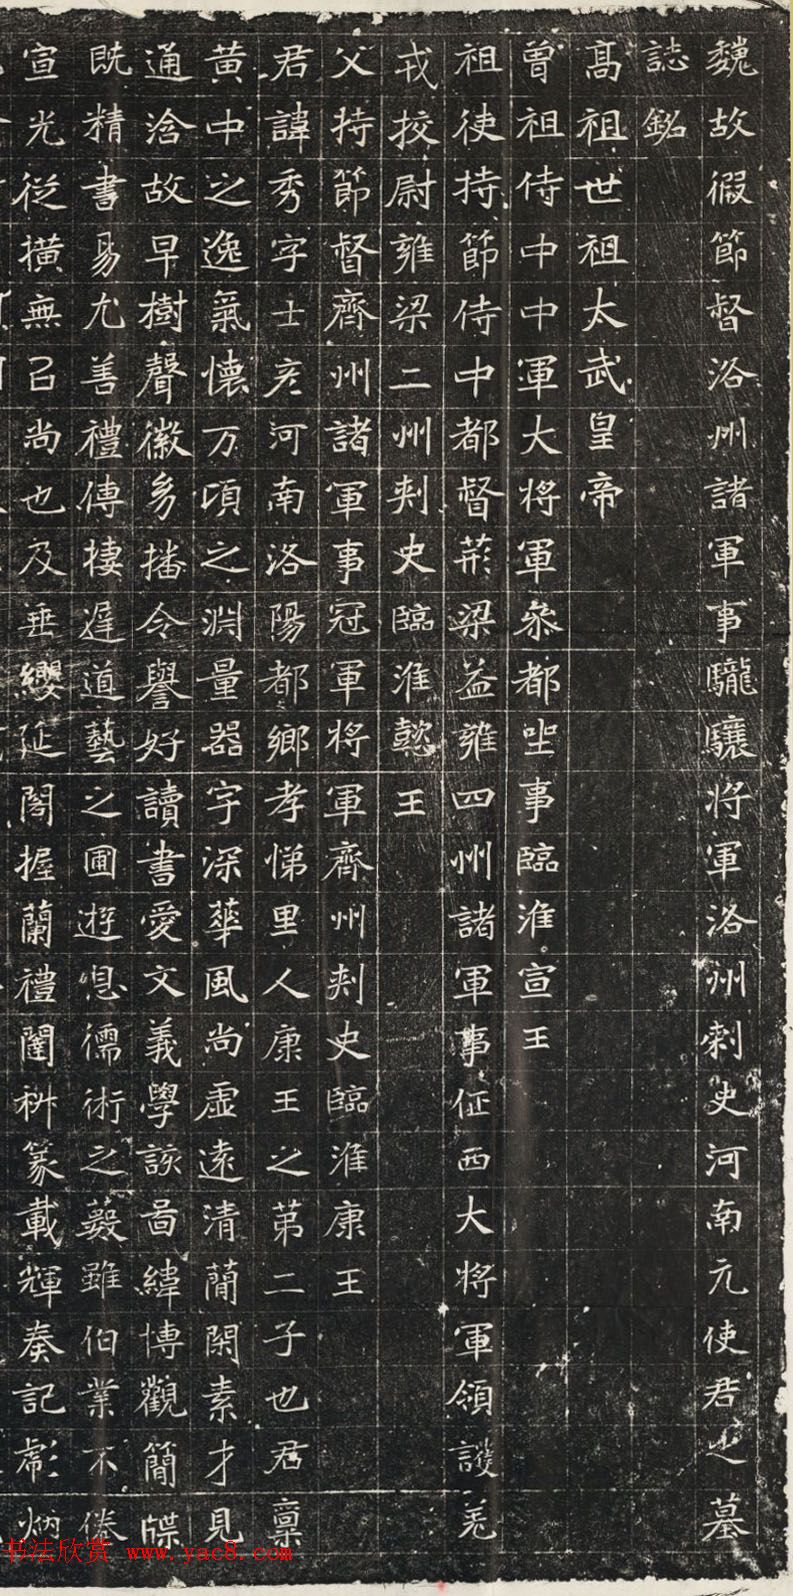 魏故假節督洛州諸軍事驡驤将軍洛州刺史河南元使君之墓
誌銘
高祖世祖太武皇帝
曾祖侍中中軍大将軍叅都㘴事臨淮宣王
祖使持節侍中都督荊梁益雍四州諸軍事征西大将軍領護羌
戎挍尉雍梁二州刾史臨淮懿王
父持節督齊州諸軍事冠軍将軍齊州刾史臨淮康王
君諱秀字士彦河南洛陽都鄉孝悌里人康王之第二子也君稟
黃中之逸氣懷万頃之淵量器宇深華風尚虛遠清蕳閑素才見
通洽故早樹聲徽多播令譽好讀書愛文義學該啚緯博觀簡牒
既精書易尤善禮傳棲遲道藝之圃遊息儒術之薮雖伯業不倦
宣光從橫無已尚也及垂纓延閣握蘭禮闈枡篆載輝奏記彪炳
书法欣赏 www.yac8.com